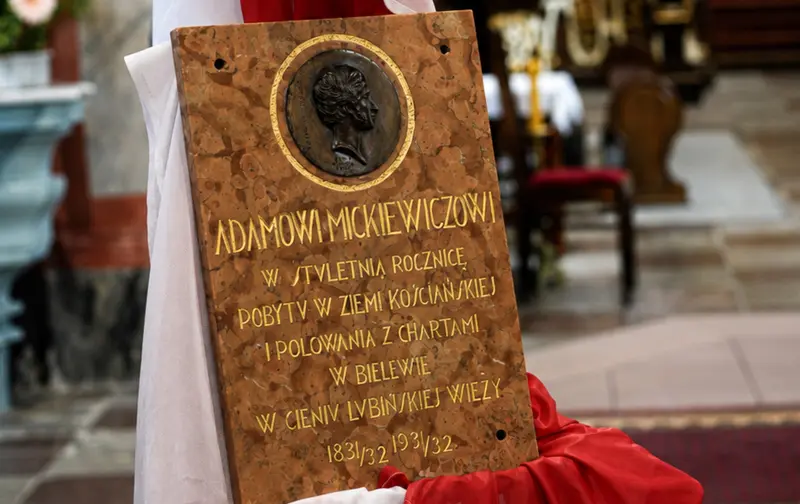 ADAMOWI MICKIEWICZOWI
W STVLETNIĄ ROCZNICĘ
POBYTV W ZIEMI KOŚCIAŃSKIEJ
I POLOWANIA Z CHARTAMI
W BIELEWIE
W CIENIV LVBIŃSKIEJ WIEŻY
1831/32 1931/32